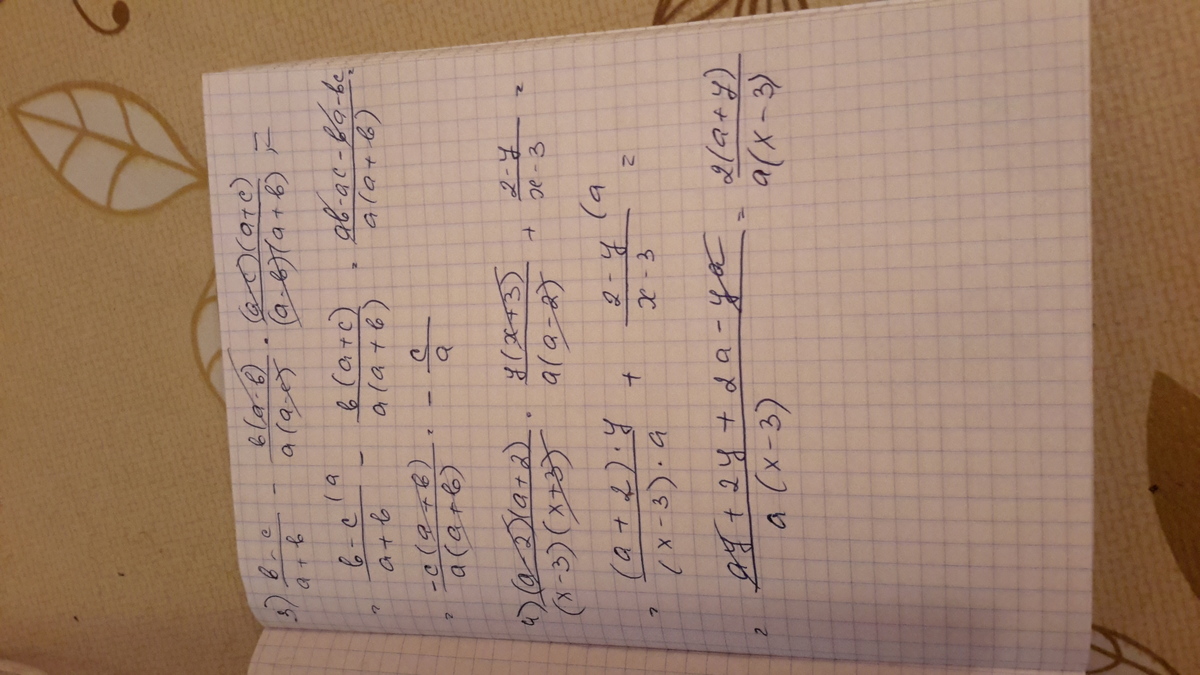 3) (b-c)/(a+b) - (b(a-b))/(a(a-c)) · ((a-c)(a+c))/((a-b)(a+b)) =
= (b-c)/(a+b) (a - (b(a+c))/(a(a+b)) = (ab-ac-ba-bc)/(a(a+b)) =
= (-c(a+b))/(a(a+b)) = - c/a
4) ((a-2)(a+2))/((x-3)(x+3)) · (y(x+3))/(a(a-2)) + (2-y)/(x-3) =
= ((a+2)·y)/((x-3)·a) + (2-y)/(x-3) (a =
= (ay+2y+2a-ya)/(a(x-3)) = (2(a+y))/(a(x-3))